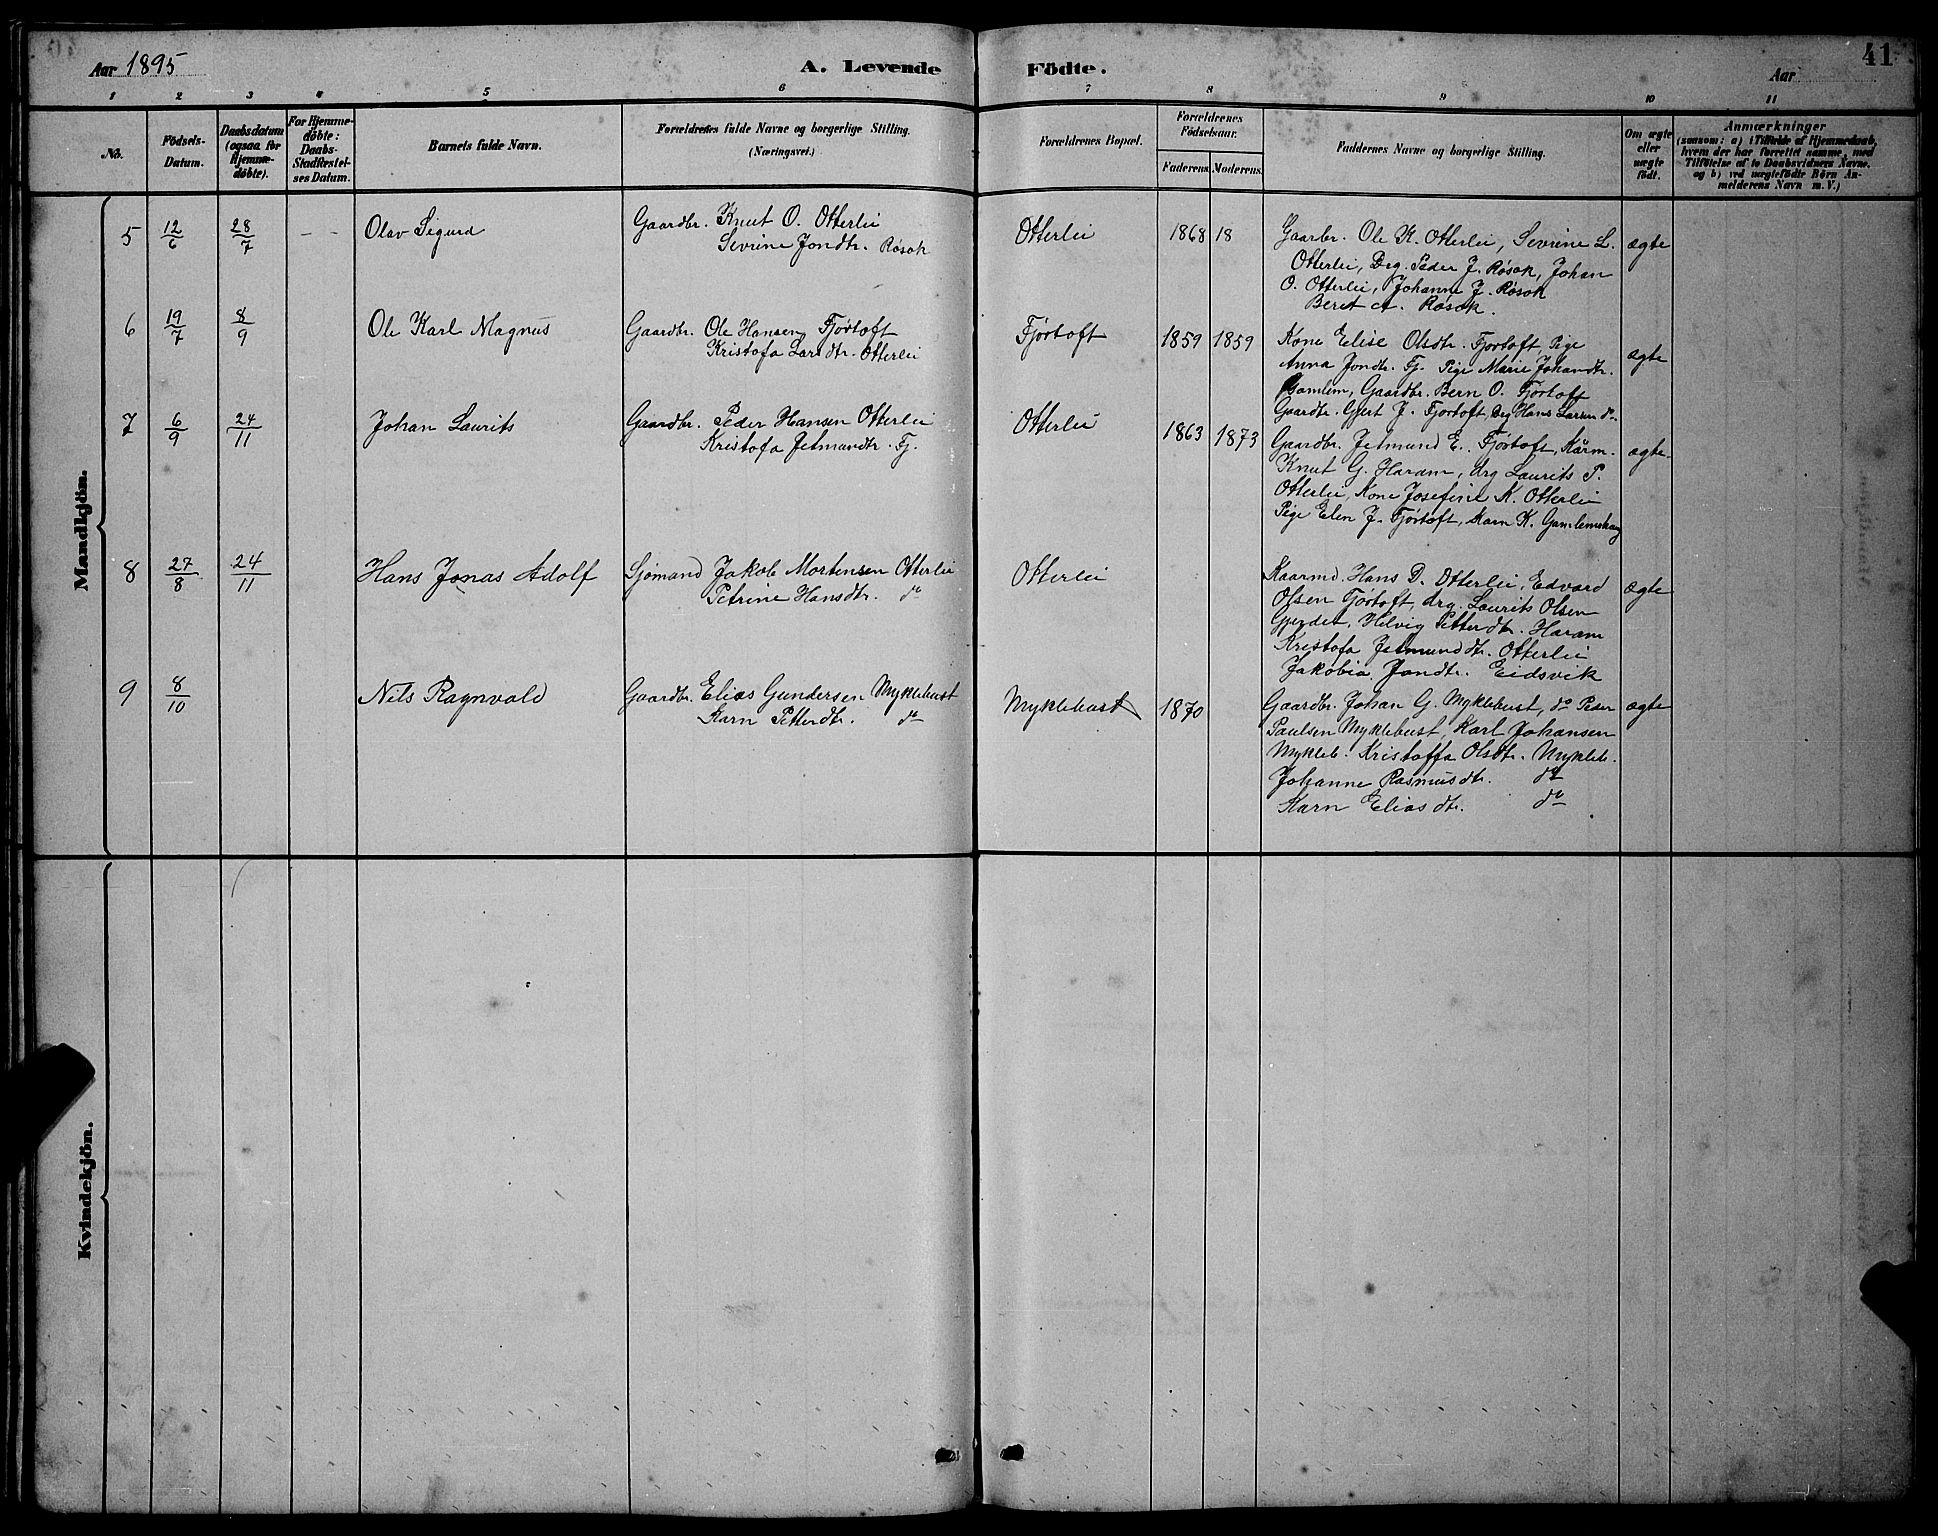 Aar 1895
A. Levende
Födte.
Aar
41
1 2 3 4 5 6 7 8 9 10 11
No.
Födsels-
Datum.
Daabsdatum
(ogsaa for
Hjemme-
döbte).
For Hjemme-
döbte:
Daabs-
Stadfæstel-
ses Datum.
Barnets fulde Navn.
Forældrenes fulde Navne og borgerlige Stilling.
(Næringsvei.)
Forældrenes Bopæl.
Forældrenes
Födselsaar.
Faderens. Moderens.
Faddernes Navne og borgerlige Stilling.
Om ægte
eller
uægte
født.
Anmærkninger
(saasom: a) i Tilfælde af Hjemmedaab,
hvem der har forrettet samme, med
Tilföielse af to Daabsvidners Navne.
og b) ved uægtefödte Börn An-
melderens Navn m. V.)
Mandkjön.
5 12/6 28/7 - - Olav Sigurd Gaardbr. Knut O. Otterlei
Sevrine Jondtr. Røsok
Otterlei 1868 18
Gaarbr. Ole K. Otterlei, Sevrine L.
Otterlei, Drg. Peder J. Røsok, Johan
O. Otterlei, Johanne J. Røsok
Beret A. Røsok.
ægte
6 19/7 8/9 Ole Karl Magnus Gaardbr. Ole Hansen Fjørtoft
Kristofa Larsdtr. Otterlei
Fjørtoft 1859 1859
Kone Elise Olsdtr. Fjørtoft, Pige
Anna Jondtr. Fj. Pige Marie Johandtr.
Gamlem, Gaardbr. Bern O. Fjørtoft
Gaardbr. Gjert J. Fjørtoft, drg Hans Larsen do
ægte
7 6/9 24/11 Johan Laurits Gaardbr. Peder Hansen Otterlei
Kristofa Jetmundtr. Fj.
Otterlei 1863 1873
Gaardbr. Jetmund E. Fjørtoft, Kårm.
Knut G. Haram, drg Laurits P.
Otterlei, Kone Josefine K. Otterlei
Pige Elen J. Fjørtoft, Karn K. Gamlemshaug
ægte
8 27/8 24/11 Hans Jonas Adolf Sjømand Jakob Mortensen Otterlei
Petrine Hansdtr. do
Otterlei
Kaarmd. Hans D. Otterlei, Edvard
Olsen Fjørtoft, drg. Laurits Olsen
Gjerdet, Helvig Petterdtr. Haram
Kristofa Jetmunddtr. Otterlei
Jakobia Jondtr. Eidsvik
ægte
9 8/10 Nils Ragnvald Gaardbr. Elias Gundersen Myklebust
Karn Petterdtr. do
Myklebust 1870
Gaardbr. Johan G. Myklebust, do Peder
Paulsen Myklebust, Karl Johansen
Mykleb. Kristoffa Olsdtr. Mykleb.
Johanne Rasmusdtr. do
Karn Eliasdtr. do
ægte
Kvindekjön.